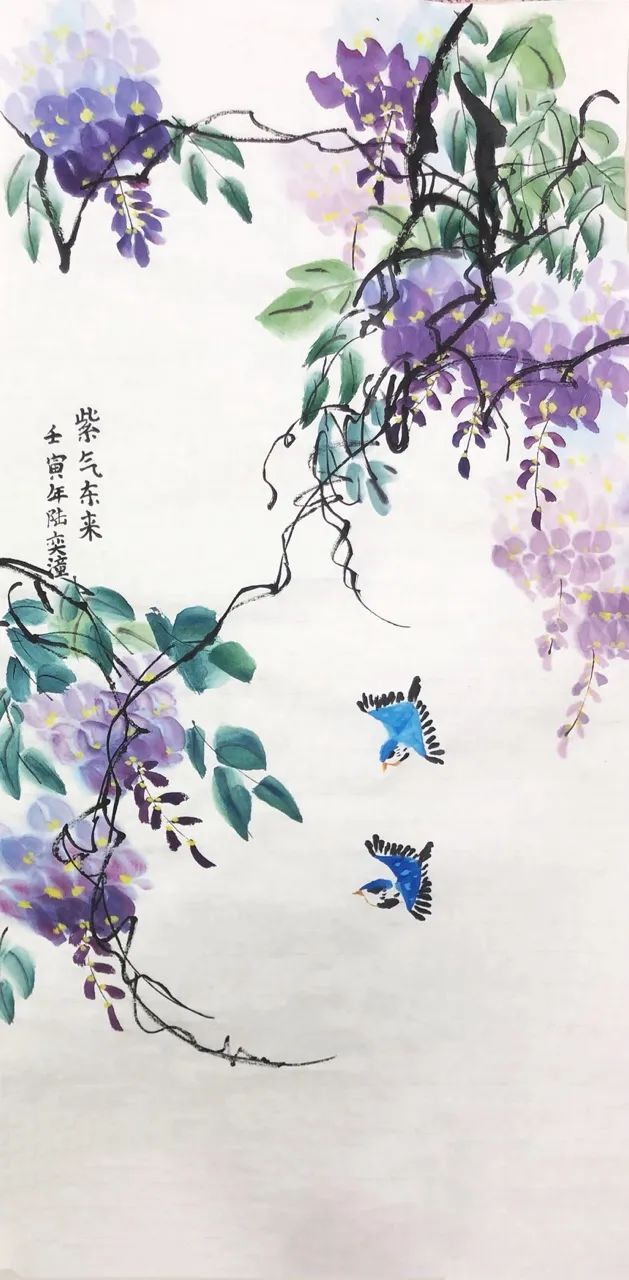 紫气东来
壬寅年陆奕潼